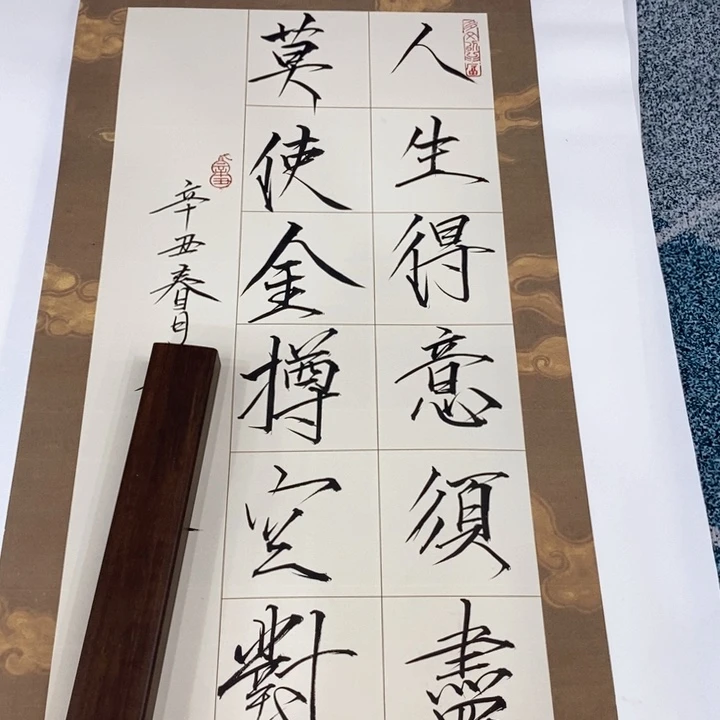 人生得意須盡
莫使金樽空對
辛丑春月